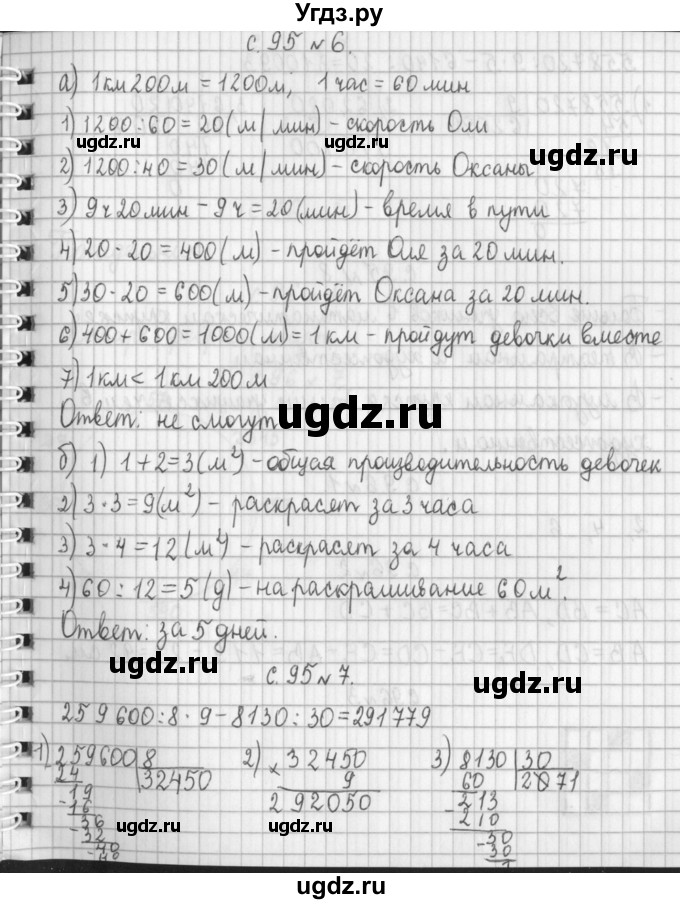 Угдз.ру
с. 95 № 6.
а) 1 км 200 м = 1200 м; 1 час = 60 мин
1) 1200 : 60 = 20 ( м / мин) - скорость Оли
ugdz.ru ugdz.ru
2) 1200 : 40 = 30 ( м / мин) - скорость Оксаны
3) 9 ч 20 мин - 9 ч = 20 (мин) - время в пути
4) 20 · 20 = 400 ( м) - пройдёт Оля за 20 мин.
5) 30 · 20 = 600 ( м) - пройдёт Оксана за 20 мин.
6) 400 + 600 = 1000 ( м) = 1 км - пройдут девочки вместе
7) 1 км < 1 км 200 м
Ответ: не смогут
ugdz.ru
б) 1) 1 + 2 = 3 (м²) - общая производительность девочек
2) 3 · 3 = 9 (м²) - раскрасят за 3 часа
3) 3 · 4 = 12 (м²) - раскрасят за 4 часа
4) 60 : 12 = 5 (д) - на раскрашивание 60 м².
Ответ: за 5 дней.
ugdz.ru ugdz.ru
с. 95 № 7.
259 600 : 8 · 9 - 8130 : 30 = 291 779
1) 259600 8 2) × 32450 3) 8130 30
24 32450 9 60 271
19 292050 213
- 16 - 210
36 30
- 32 - 30
40
- 40
ugdz.ru ugdz.ru
ugdz.ru
ugdz.ru